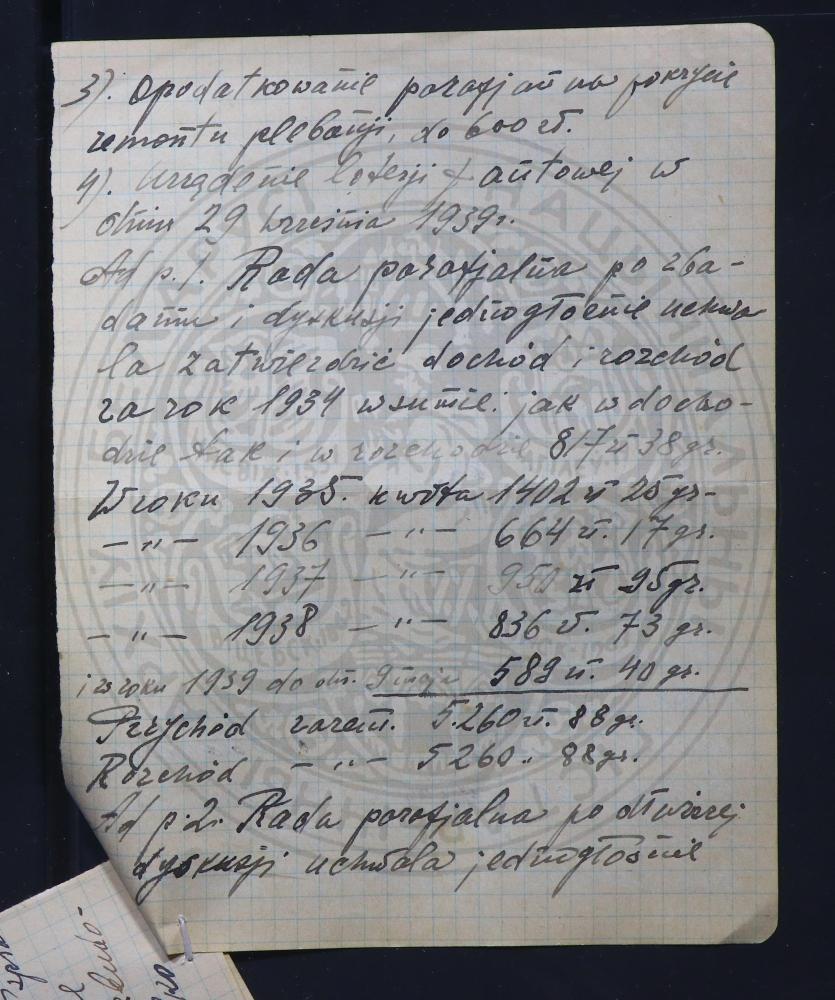 3). Opodatkowanie parafjan na pokrycie
remontu plebanji, do 600 zł.
4). Urządzenie loterji fantowej w
dniu 29 września 1939r.
Ad p. 1. Rada parafjalna po zba-
daniu i dyskusji jednogłośnie uchwa
la zatwierdzić dochód i rozchód
za rok 1934 w sumie: jak w docho-
dzie tak i w rozchodzie 817 zł 38 gr.
W roku 1935. kwota 1402 zł 25 gr-
— „ — 1936 — „ — 664 zł. 17 gr.
— „ — 1937 — „ — 950 zł 95 gr.
— „ — 1938 — „ — 836 zł. 73 gr.
i w roku 1939 do dn. 9 maja 589 zł. 40 gr.
Przychód razem. 5.260 zł. 88 gr.
Rozchód — „ — 5260 „ 88 gr.
Ad p. 2. Rada parafjalna po dłuższej
dyskusji uchwala jednogłośnie